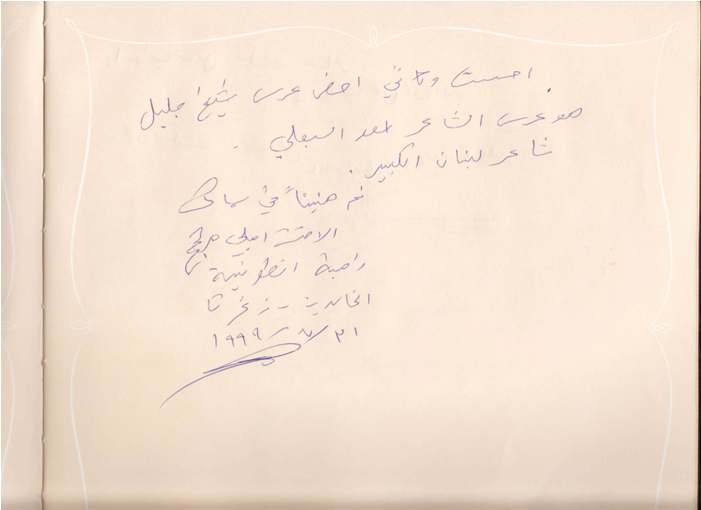 احسست وكأني احضر عرس شيخ جليل
هو عرس الشاعر اسعد السبعلي .
شاعر لبنان الكبير .
نم هنيئاً في سماك
الاخت اميلي
راهبة انطونية
الخالدية - زغرتا
٢١/٧/١٩٩٩